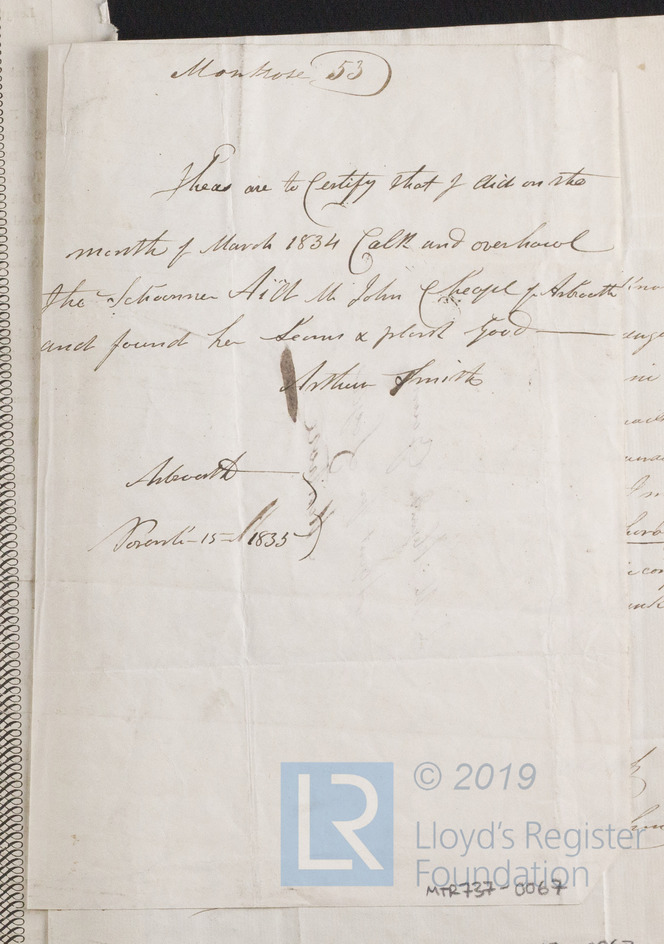 Montrose 53
Theas are to Certify that I did on the
month of March 1834 Calk and overhawl
the Schooner M John of Arbroath
and found her Seams & plank Good
Arthur Smith
Arbroath
15 1835
© 2019
LR
Lloyd's Register
Foundation
MTR737-0067